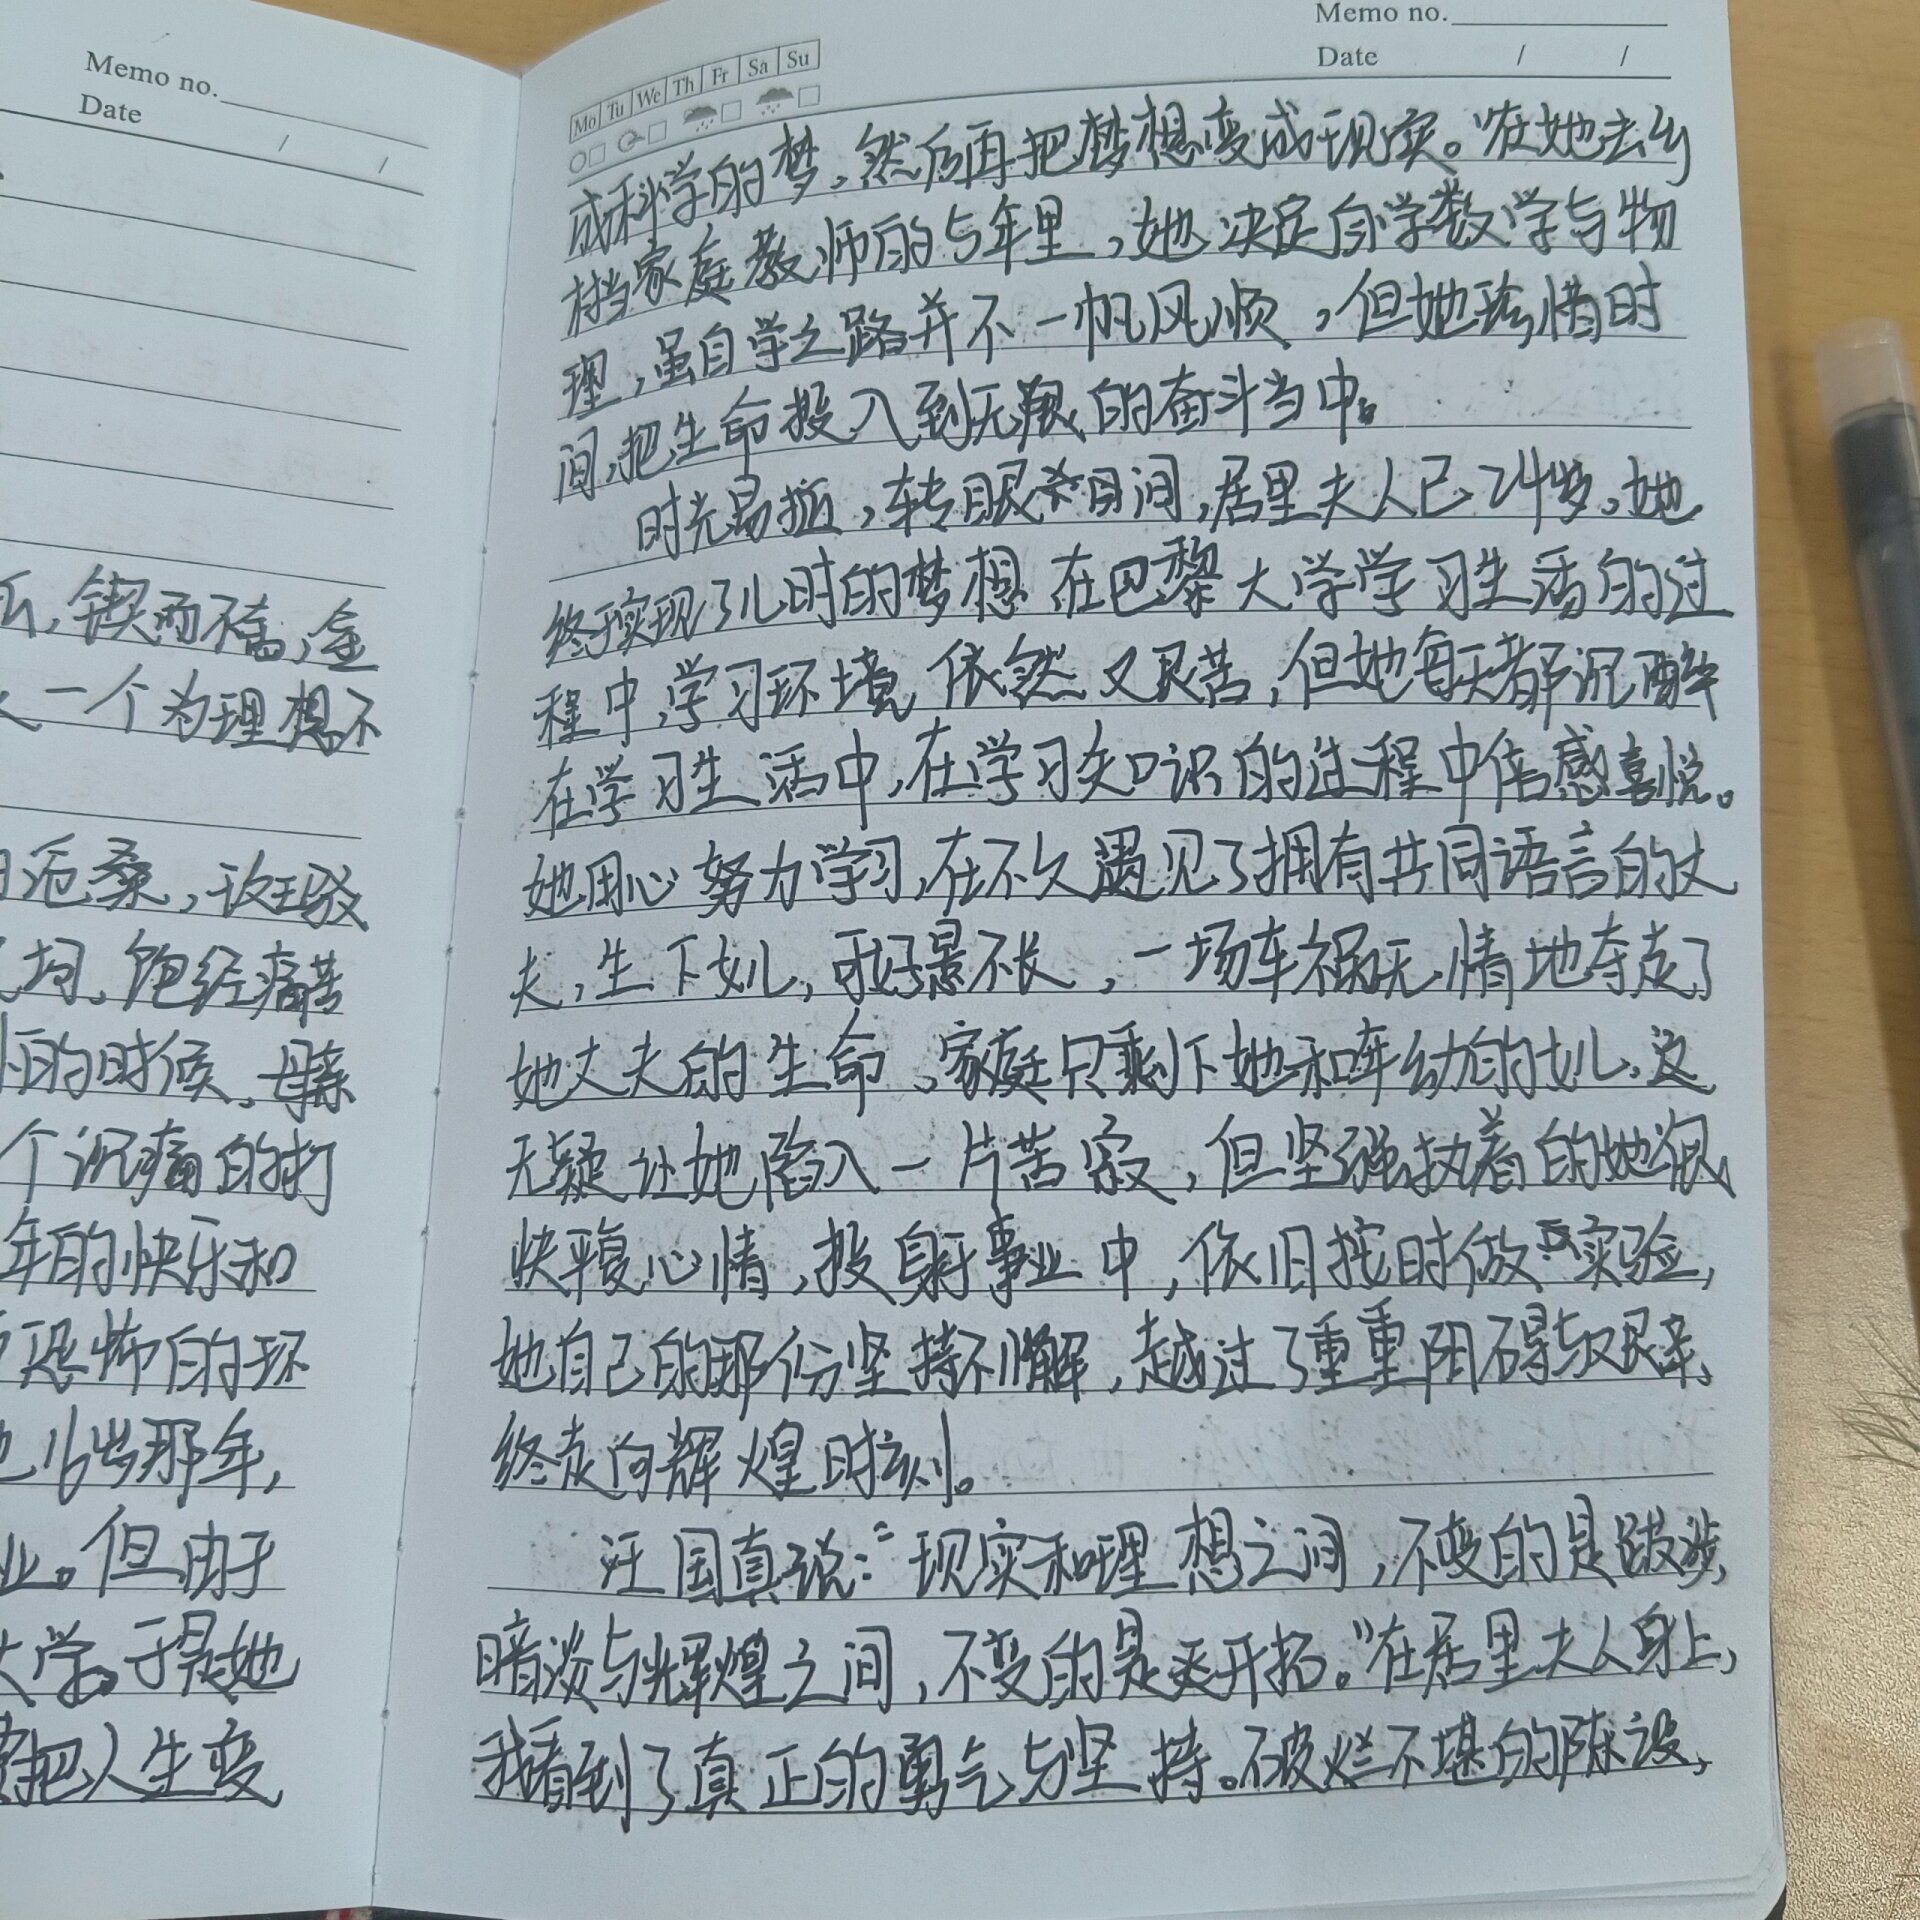 Memo no.
Date / /
后，锲而不舍，金
一个为理想不
沧桑，
饱经痛苦
的时候，母亲
个沉痛的打
年的快乐和
恐怖的环
16岁那年，
业。但由于
大学。于是她
把人生变
Memo no.
Date / /
Mo Tu We Th Fr Sa Su
成科学的梦，然后再把梦想变成现实。"在她去乡
村当家庭教师的5年里，她决定自学数学与物
理，虽自学之路并不一帆风顺，但她珍惜时
间，把生命投入到无限的奋斗当中。
时光易逝，转眼间，居里夫人已24岁。她
终于实现了儿时的梦想 在巴黎大学学习生活的过
程中，学习环境依然又艰苦，但她每天都沉醉
在学习生活中，在学习知识的过程中倍感喜悦。
她用心努力学习，在不久遇见了拥有共同语言的丈
夫，生下女儿，可好景不长，一场车祸无情地夺走了
她丈夫的生命，家庭只剩下她和年幼的女儿，这
无疑让她陷入一片苦寂，但坚强执着的她很
快平复心情，投身于事业中，依旧按时做实验，
她自己的那份坚持不懈，越过了重重阻碍与艰辛，
终走向辉煌时刻。
汪国真说："现实和理想之间，不变的是跋涉，
暗淡与辉煌之间，不变的是开拓。"在居里夫人身上，
我看到了真正的勇气与坚持。破烂不堪的陈设，